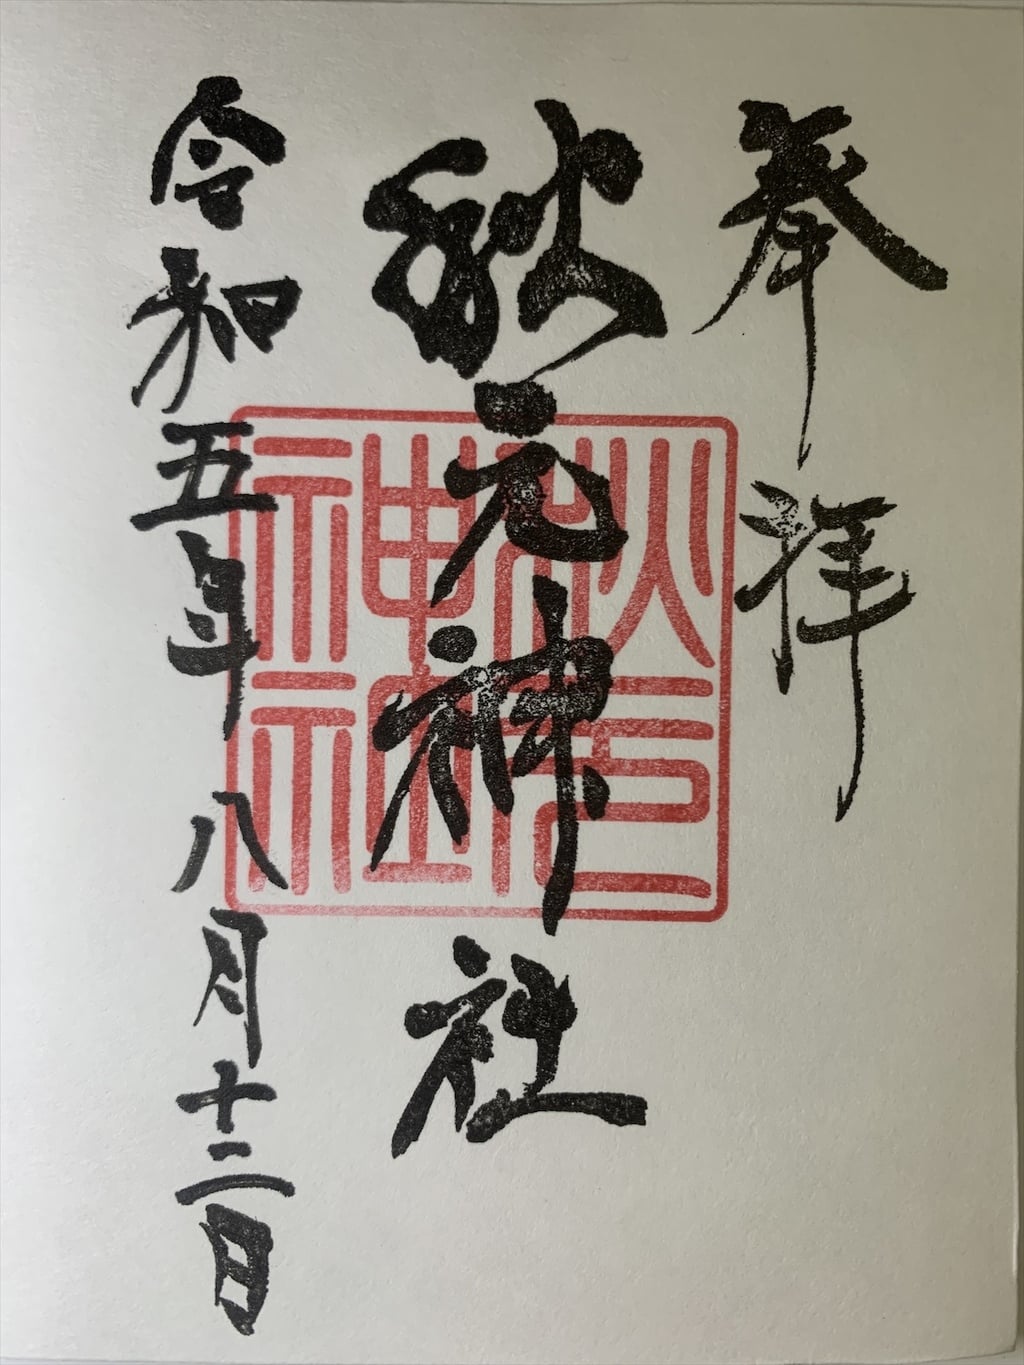 奉拝
秋元神社
秋元神社
令和五年八月十二日